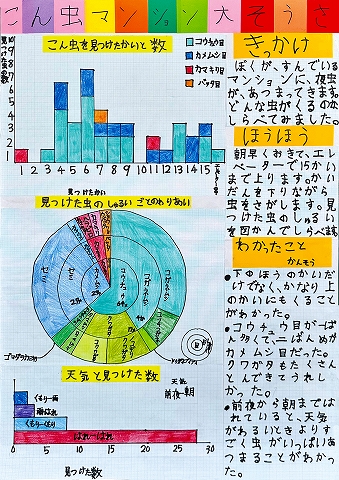 こん虫マンション大そうさ
こん虫を見つけたかいと数
見つけた虫の数
コウチュウ目
カメムシ目
カマキリ目
バッタ目
10
9
8
7
6
5
4
3
2
1
1 2 3 4 5 6 7 8 9 10 11 12 13 14 15
見つけたかい
見つけた虫のしゅるいごとのわりあい
コウチュウ目
64%
カメムシ目
セミ
セミ
コガネムシ
コガネムシ
クワガタ
天気と見つけた数
天気
前夜→朝
くもり→雨
雨→はれ
くもり→くもり
はれ→はれ
0 5 10 15 20 25 30
見つけた数
きっかけ
ぼくが、すんでいる
マンションに、夜、虫
が、あつまってきます。
どんな虫がくるのか
しらべてみました。
ほうほう
朝早くおきて、エレ
ベーターで15かい
まで上ります。かい
だんを下りながら
虫をさがします。見
つけた虫のしゅるい
を図かんでしらべます。
わかったこと
かんそう
●下のほうのかいだ
けでなく、かなり上
のかいにもくること
がわかった。
●コウチュウ目が一ば
ん多くて、二ばんめが
カメムシ目だった。
クワガタもたくさん
とんできてうれし
かった。
●前夜から朝まではれ
ていると、天気
がわるいときよりす
ごく虫がいっぱいあ
つまることがわかっ
た。